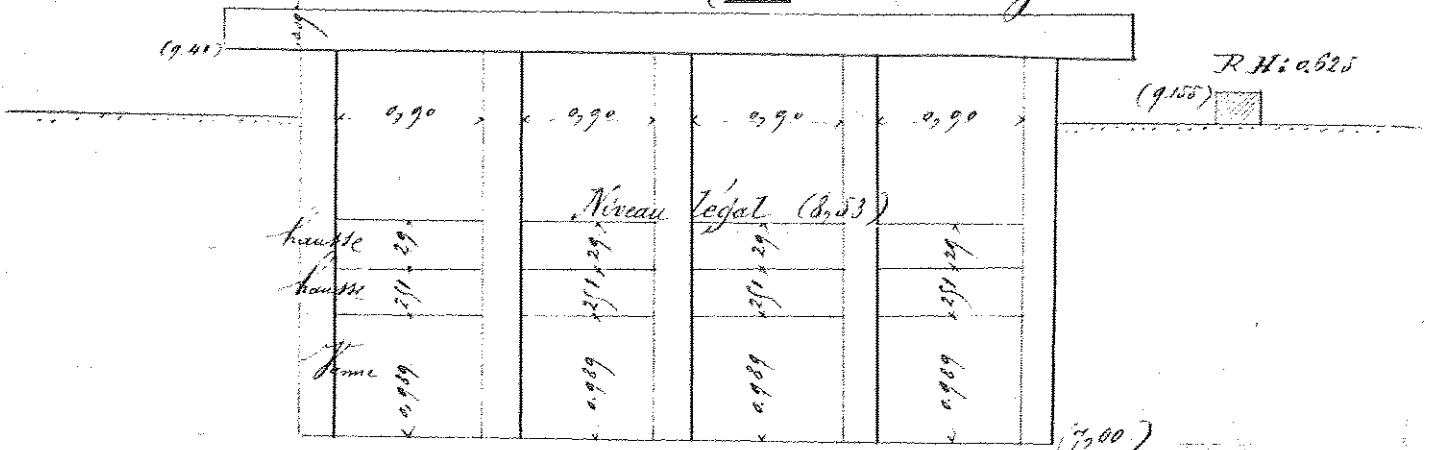 (9.41)
R H: 0.625
(9.155)
0,90 0,90 0,90 0,90
Niveau légal (8,53)
hausse 29 29 29 29
hausse 251 251 251 251
Vanne 0,989 0.989 0.989 0,989
(7,00)